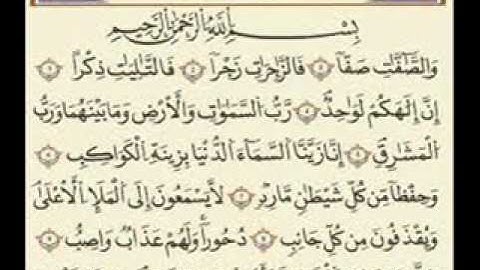 بِسْمِ اللَّهِ الرَّحْمَٰنِ الرَّحِيمِ
وَالصَّافَّاتِ صَفًّا ۝ فَالزَّاجِرَاتِ زَجْرًا ۝ فَالتَّالِيَاتِ ذِكْرًا ۝
إِنَّ إِلَهَكُمْ لَوَاحِدٌ ۝ رَّبُّ السَّمَاوَاتِ وَالْأَرْضِ وَمَا بَيْنَهُمَا وَرَبُّ
الْمَشَارِقِ ۝ إِنَّا زَيَّنَّا السَّمَاءَ الدُّنْيَا بِزِينَةٍ الْكَوَاكِبِ ۝
وَحِفْظًا مِّن كُلِّ شَيْطَانٍ مَّارِدٍ ۝ لَّا يَسَّمَّعُونَ إِلَى الْمَلَإِ الْأَعْلَىٰ
وَيُقْذَفُونَ مِن كُلِّ جَانِبٍ ۝ دُحُورًا وَلَهُمْ عَذَابٌ وَاصِبٌ ۝